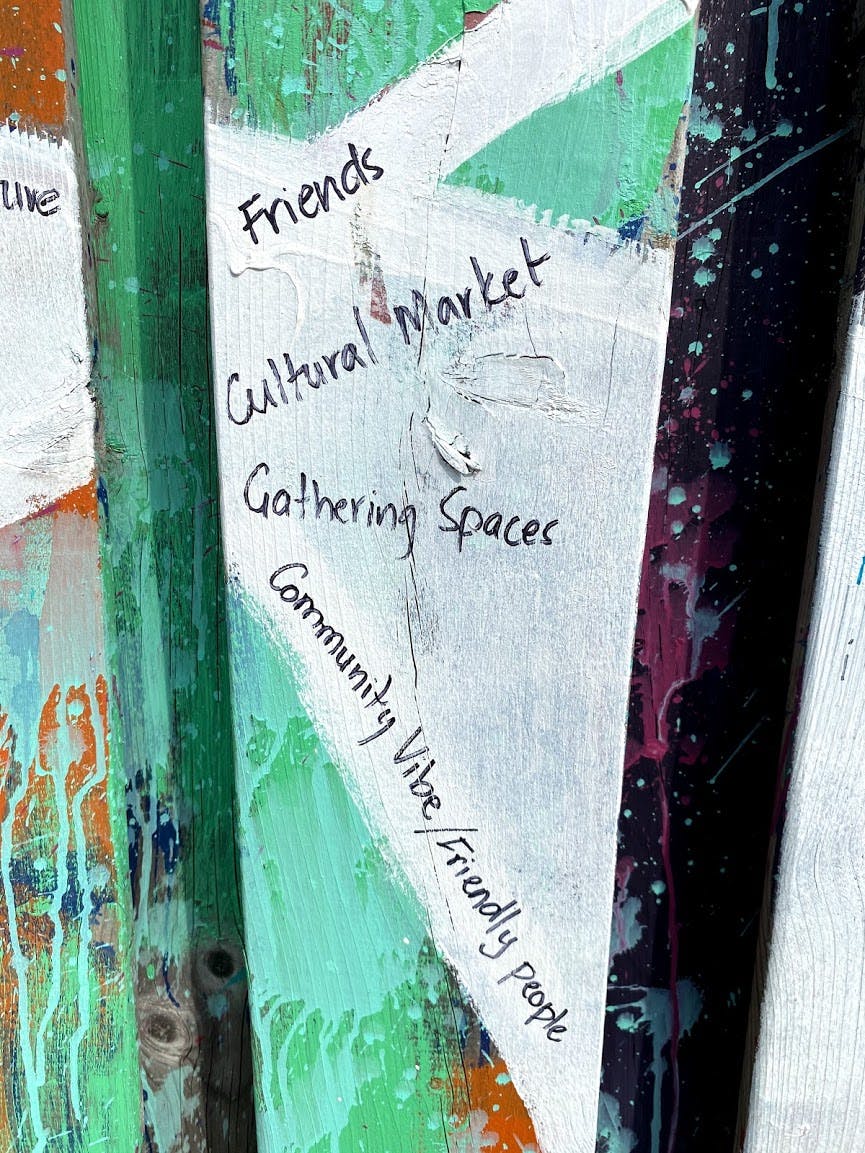 Friends
Cultural Market
Gathering Spaces
Community Vibe/Friendly people